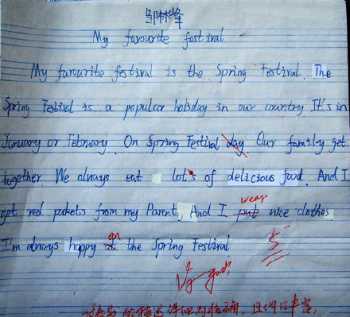 My favourite festival
My favourite festival is the Spring Festival. The
Spring Festival is a popular holiday in our country. It's in
January or February. On Spring Festival day Our family get
together. We always eat lots of delicious food. And I
wear
get red pakets from my Parent. And I put nice clothes.
on
I'm always happy at the Spring Festival
Very good